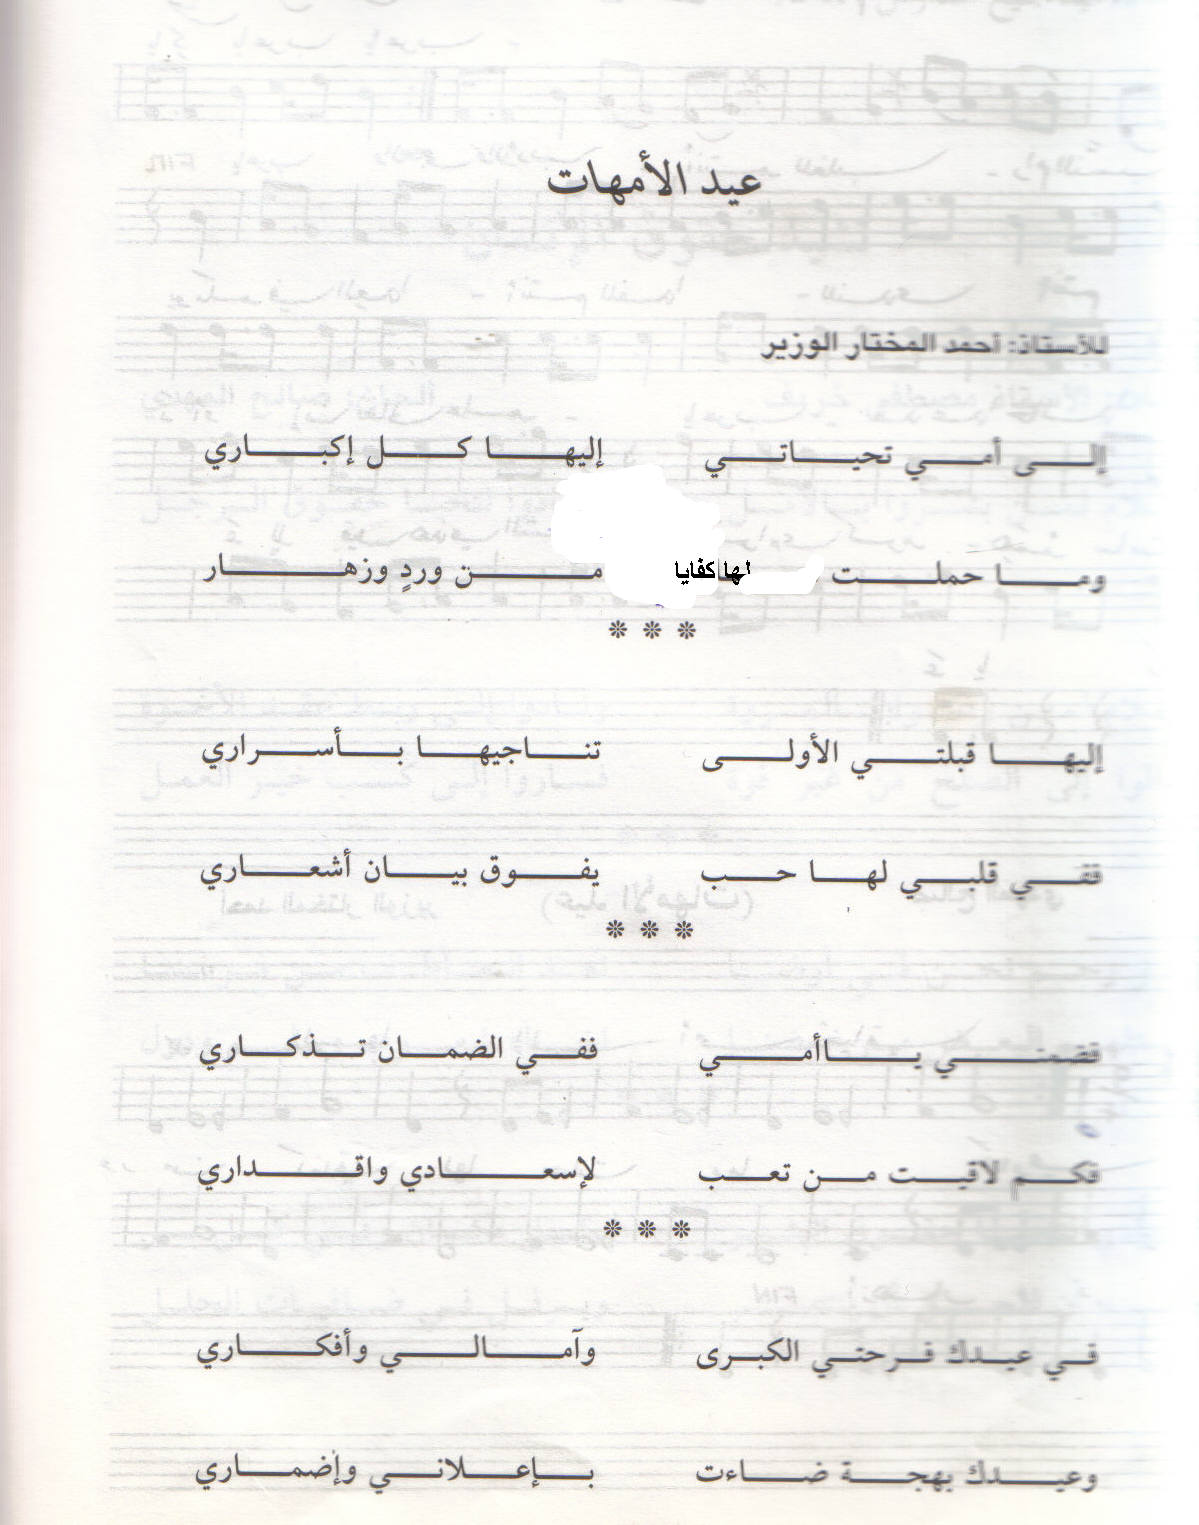 عيد الأمهات
للأستاذ: أحمد المختار الوزير
إلى أمي تحياتي إليها كل إكباري
وما حملت لها كفايا من وردٍ وزهار
❊ ❊ ❊
إليها قبلتي الأولى تناجيها بأسراري
ففي قلبي لها حب يفوق بيان أشعاري
❊ ❊ ❊
فضمني ياأمي ففي الضمان تذكاري
فكم لاقيت من تعب لإسعادي واقداري
❊ ❊ ❊
في عيدك فرحتي الكبرى وآمالي وأفكاري
وعيدك بهجة ضاءت بإعلاني وإضماري